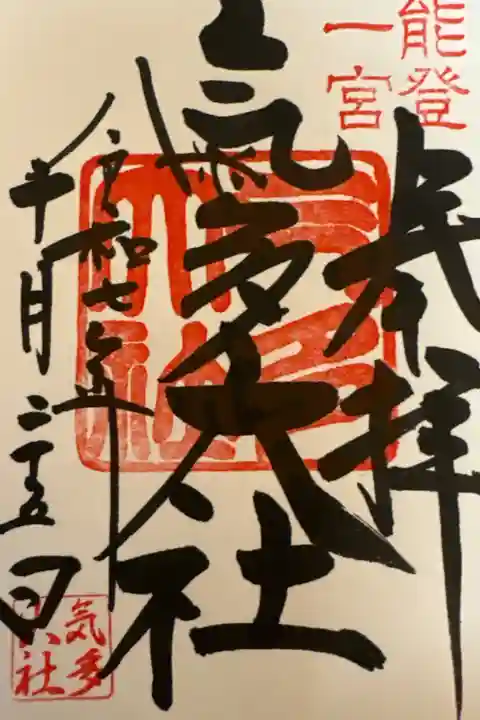 能登
一宮
奉拝
氣多大社
令和七年
十月二十五日
気多
大社